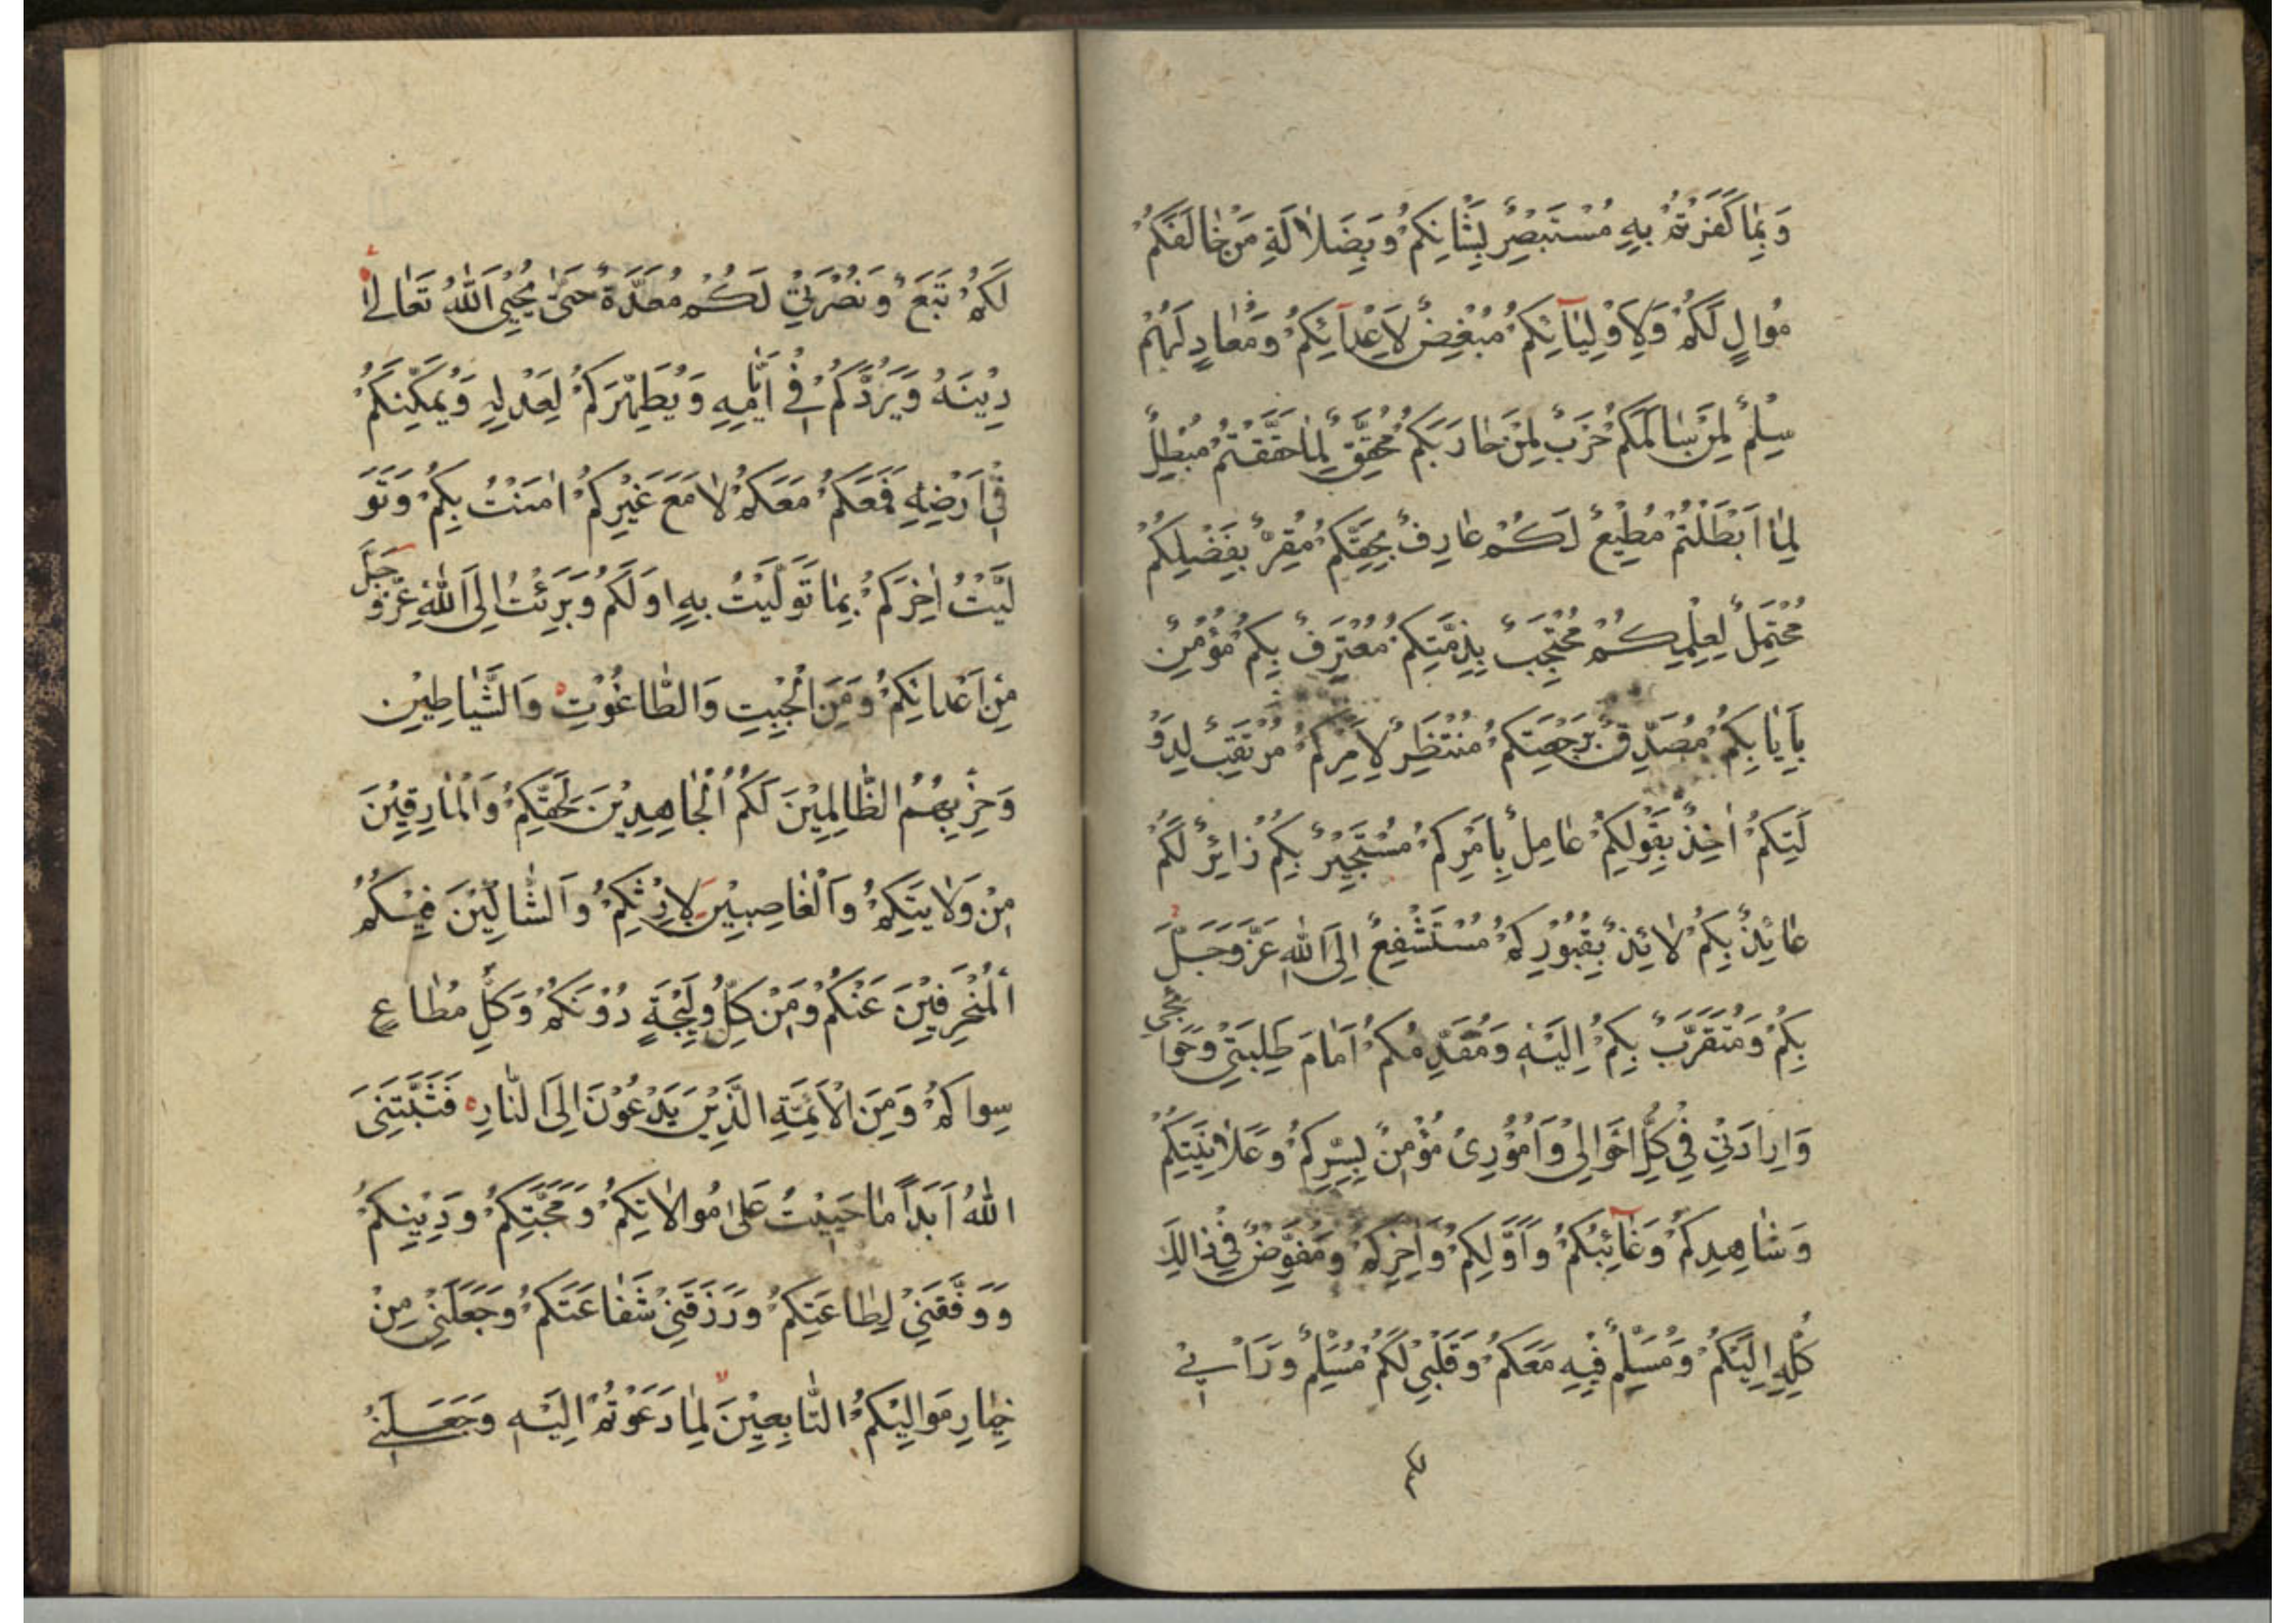 وَبِمٰا كَفَرْتُمْ بِهِ مُسْتَبْصِرٌ بِشَانِكُمْ وَبِضَلاٰلَةِ مَنْ خٰالَفَكُمْ
مُوٰالٍ لَكُمْ وَلِاَوْلِيٰآئِكُمْ مُبْغِضٌ لِاَعْدٰآئِكُمْ وَمُعٰادٍ لَهُمْ
سِلْمٌ لِمَنْ سٰالَمَكُمْ حَرْبٌ لِمَنْ حٰارَبَكُمْ مُحَقِّقٌ لِمٰا حَقَّقْتُمْ مُبْطِلٌ
لِمٰا اَبْطَلْتُمْ مُطِيْعٌ لَكُمْ عٰارِفٌ بِحَقِّكُمْ مُقِرٌّ بِفَضْلِكُمْ
مُحْتَمِلٌ لِعِلْمِكُمْ مُحْتَجِبٌ بِذِمَّتِكُمْ مُعْتَرِفٌ بِكُمْ مُؤْمِنٌ
بِاِيٰابِكُمْ مُصَدِّقٌ بِرَجْعَتِكُمْ مُنْتَظِرٌ لِاَمْرِكُمْ مُرْتَقِبٌ لِدَوْ
لَتِكُمْ اٰخِذٌ بِقَوْلِكُمْ عٰامِلٌ بِاَمْرِكُمْ مُسْتَجِيْرٌ بِكُمْ زٰائِرٌ لَكُمْ
عٰائِذٌ بِكُمْ لاٰئِذٌ بِقُبُوْرِكُمْ مُسْتَشْفِعٌ اِلَى اللّٰهِ عَزَّ وَجَلَّ
بِكُمْ وَمُتَقَرِّبٌ بِكُمْ اِلَيْهِ وَمُقَدِّمُكُمْ اَمٰامَ طَلِبَتِيْ وَحَوٰائِجِي
وَاِرٰادَتِيْ فِيْ كُلِّ اَحْوٰالِيْ وَاُمُوْرِيْ مُؤْمِنٌ بِسِرِّكُمْ وَعَلاٰنِيَتِكُمْ
وَشٰاهِدِكُمْ وَغٰآئِبِكُمْ وَاَوَّلِكُمْ وَاٰخِرِكُمْ وَمُفَوِّضٌ فِيْ ذٰالِكَ
كُلِّهِ اِلَيْكُمْ وَمُسَلِّمٌ فِيْهِ مَعَكُمْ وَقَلْبِيْ لَكُمْ مُسَلِّمٌ وَرَاْيِيْ
لَكُمْ تَبَعٌ وَنُصْرَتِيْ لَكُمْ مُعَدَّةٌ حَتّٰى يُحْيِيَ اللّٰهُ تَعٰالىٰ
دِيْنَهُ وَيَرُدَّكُمْ فِيْ اَيّٰامِهِ وَيُظْهِرَكُمْ لِعَدْلِهِ وَيُمَكِّنَكُمْ
فِيْ اَرْضِهِ فَمَعَكُمْ مَعَكُمْ لاٰ مَعَ غَيْرِكُمْ اٰمَنْتُ بِكُمْ وَتَوَ
لَّيْتُ اٰخِرَكُمْ بِمٰا تَوَلَّيْتُ بِهِ اَوَّلَكُمْ وَبَرِئْتُ اِلَى اللّٰهِ عَزَّ وَجَلَّ
مِنْ اَعْدٰائِكُمْ وَمِنَ الْجِبْتِ وَالطّٰاغُوْتِ وَالشَّيٰاطِيْن
وَحِزْبِهِمُ الظّٰالِمِيْنَ لَكُمُ الْجٰاحِدِيْنَ لِحَقِّكُمْ وَالْمٰارِقِيْنَ
مِنْ وَلاٰيَتِكُمْ وَالْغٰاصِبِيْنَ لِاِرْثِكُمْ وَالشّٰاكِّيْنَ فِيْكُمْ
الْمُنْحَرِفِيْنَ عَنْكُمْ وَمِنْ كُلِّ وَلِيْجَةٍ دُوْنَكُمْ وَكُلِّ مُطٰاعٍ
سِوٰاكُمْ وَمِنَ الْاَئِمَّةِ الَّذِيْنَ يَدْعُوْنَ اِلَى النّٰارِ فَثَبَّتَنِيَ
اللّٰهُ اَبَدًا مٰا حَيِيْتُ عَلىٰ مُوٰالاٰتِكُمْ وَمَحَبَّتِكُمْ وَدِيْنِكُمْ
وَوَفَّقَنِيْ لِطٰاعَتِكُمْ وَرَزَقَنِيْ شَفٰاعَتَكُمْ وَجَعَلَنِيْ مِنْ
خِيٰارِ مَوٰالِيْكُمْ التّٰابِعِيْنَ لِمٰا دَعَوْتُمْ اِلَيْهِ وَجَعَلَنِيْ